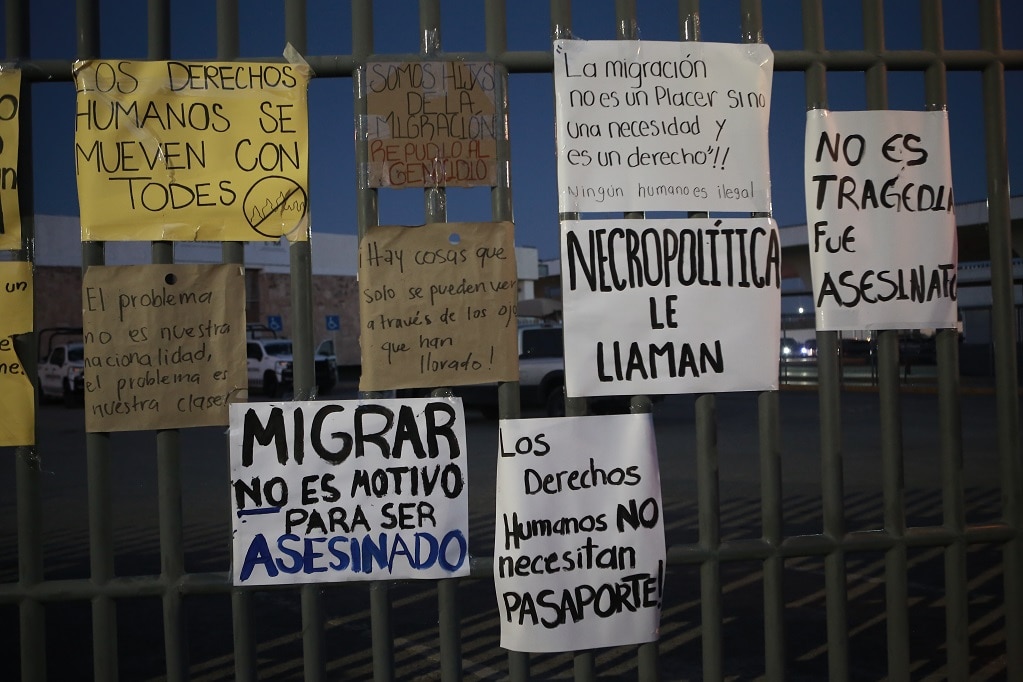 LOS DERECHOS
HUMANOS SE
MUEVEN CON
TODES
SOMOS HIJXS
DE LA
MIGRACIÓN
REPUDIO AL
GENOCIDIO
"La migración
no es un Placer sino
una necesidad y
es un derecho"!!
Ningún humano es ilegal
NO ES
TRAGEDIA
FUE
ASESINATO
El problema
no es nuestra
nacionalidad,
el problema es
nuestra clase!
¡Hay cosas que
solo se pueden ver
a través de los ojos
que han
llorado!
NECROPOLÍTICA
LE
LLAMAN
un
MIGRAR
NO ES MOTIVO
PARA SER
ASESINADO
Los
Derechos
Humanos NO
necesitan
PASAPORTE!